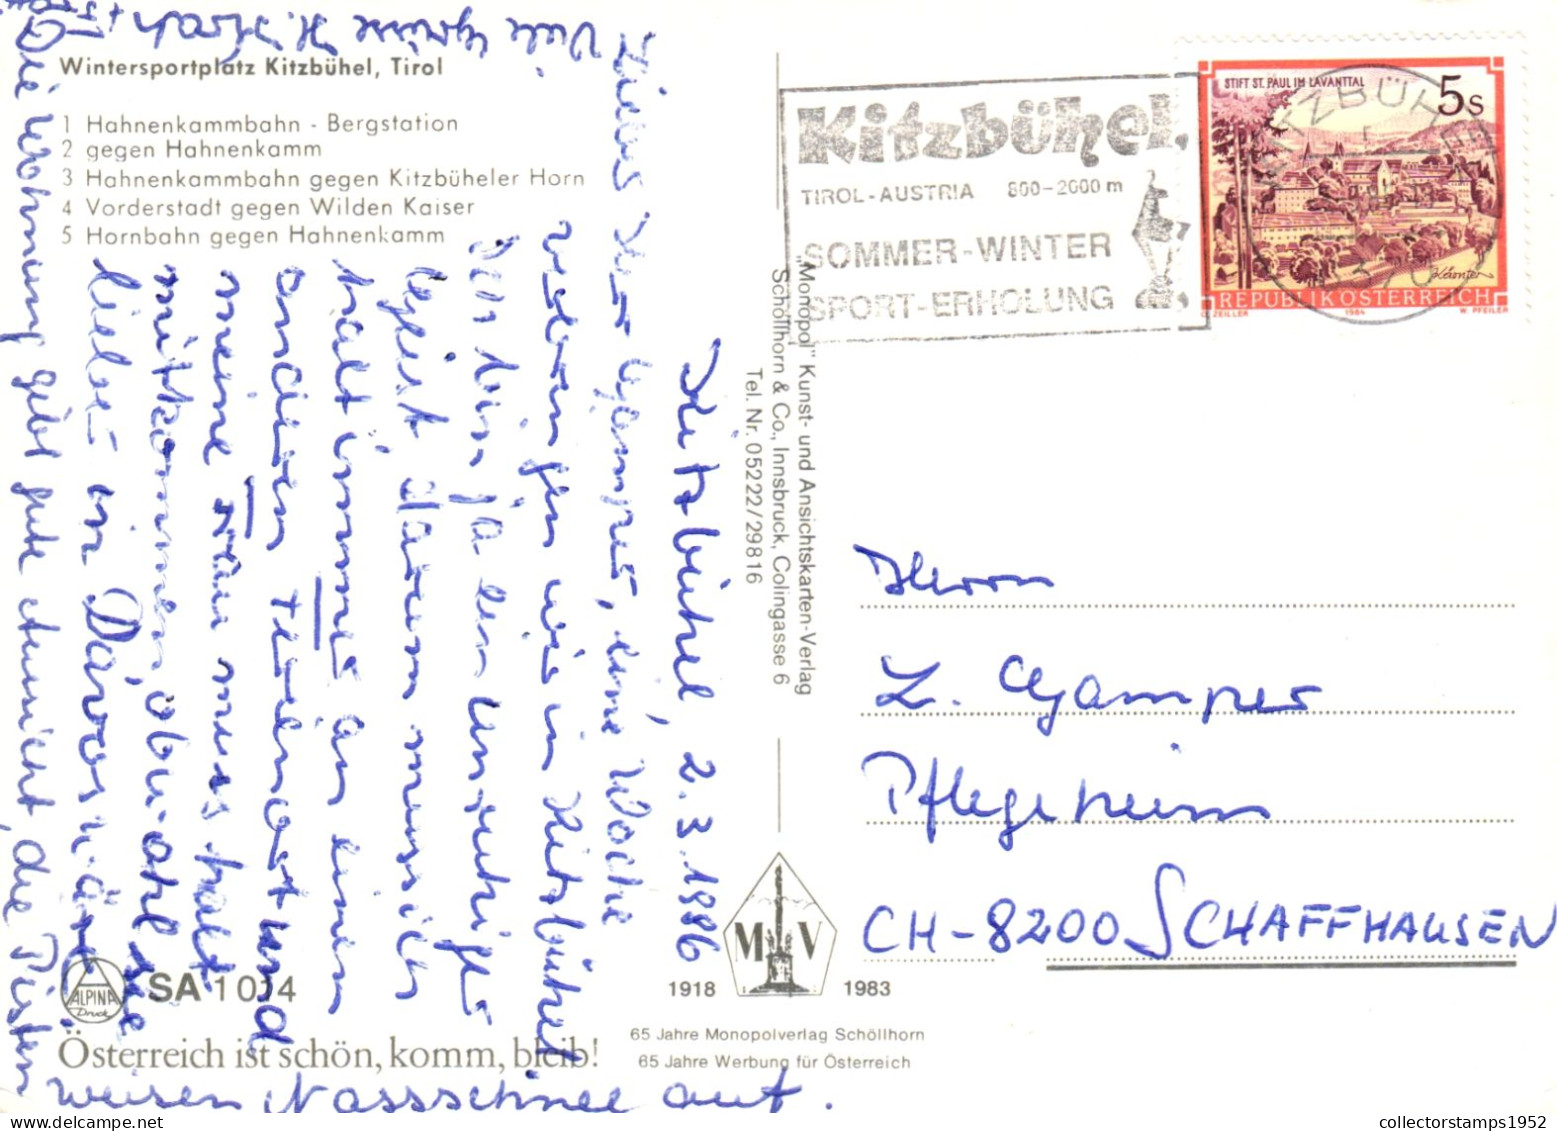 Wintersportplatz Kitzbühel, Tirol
1 Hahnenkammbahn - Bergstation
2 gegen Hahnenkamm
3 Hahnenkammbahn gegen Kitzbüheler Horn
4 Vorderstadt gegen Wilden Kaiser
5 Hornbahn gegen Hahnenkamm
Kitzbühel, 2.3.1986
Lieber Herr Gamper, eine Woche
verbringen wir in Kitzbühel
Ich bin ja ein unruhiger
Geist darum muss ich
halt immer an einen
anderen Ferienort und
meine Frau muss halt
mitkommen, obwohl sie
lieber in Davos wäre
Die Wohnung gibt gute Aussicht, die Pisten
weisen Nassschnee auf.
Viele Grüsse H.
"Monopol" Kunst- und Ansichtskarten-Verlag
Schöllhorn & Co., Innsbruck, Colingasse 6
Tel. Nr. 05222/29816
Kitzbühel
TIROL-AUSTRIA 800-2000 m
SOMMER-WINTER
SPORT-ERHOLUNG
STIFT ST. PAUL IM LAVANTTAL
5 S
Kärnten
REPUBLIK ÖSTERREICH
O. ZEILLER 1984 W. PFEILER
KITZBÜHEL
6370
Herrn
L. Gamper
Pflegeheim
CH-8200 SCHAFFHAUSEN
M V
1918 1983
65 Jahre Monopolverlag Schöllhorn
65 Jahre Werbung für Österreich
ALPINA
Druck
SA 1014
Österreich ist schön, komm, bleib!
collectorstamps1952